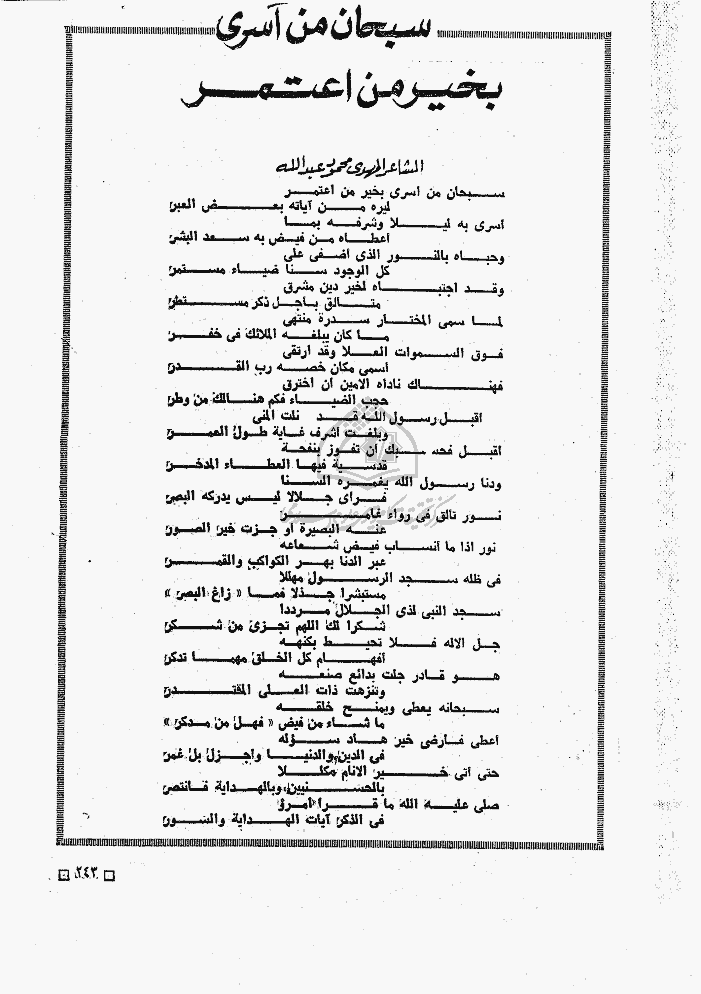 سبحان من أسرى
بخير من اعتمر
الشاعر المهدى محمود عبدالله
سبحان من أسرى بخير من اعتمر
ليره من آياته بعض العبر
أسرى به ليلا وشرفه بما
أعطاه من فيض به سعد البشر
وحباه بالنور الذى اضفى على
كل الوجود سنا ضياء مستمر
وقد اجتباه لخير دين مشرق
متالق باجل ذكر مستطر
لما سمى المختار سدرة منتهى
ما كان يبلغه الملائك فى خفر
فوق السموات العلا وقد ارتقى
أسمى مكان خصه رب القدر
فهناك ناداه الامين ان اخترق
حجب الضياء فكم هنالك من وطر
اقبل رسول الله قد نلت المنى
وبلغت اشرف غاية طول العمر
اقبل فحسبك ان تفوز بنفحة
قدسية فيها العطاء المدخر
ودنا رسول الله يغمره السنا
فراى جلالا ليس يدركه البصر
نور تالق فى رواء غامر
عنه البصيرة او جزت خير الصور
نور اذا ما انساب فيض شعاعه
عبر الدنا بهر الكواكب والقمر
فى ظله سجد الرسول مهللا
مستبشرا جذلا فما « زاغ البصر »
سجد النبى لذى الجلال مرددا
شكرا لك اللهم تجزى من شكر
جل الاله فلا تحيط بكنهه
أفهام كل الخلق مهما تدكر
هو قادر جلت بدائع صنعه
وتنزهت ذات العلى المقتدر
سبحانه يعطى ويمنح خلقه
ما شاء من فيض « فهل من مدكر »
أعطى فارضى خير هاد سؤله
فى الدين والدنيا واجزل بل غمر
حتى أتى خير الانام مكللا
بالحسنيين وبالهداية فانتصر
صلى عليه الله ما قرا امرؤ
فى الذكر آيات الهداية والسور
٢٤٣